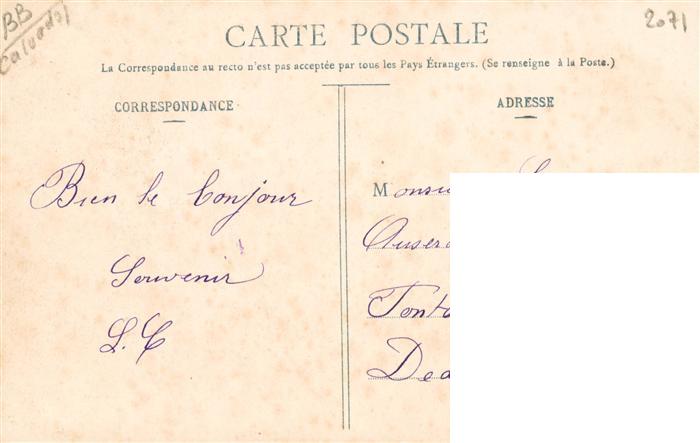 BB
Calvados
2071
CARTE POSTALE
La Correspondance au recto n'est pas acceptée par tous les Pays Étrangers. (Se renseigne à la Poste.)
CORRESPONDANCE
ADRESSE
Bien le bonjour
Souvenir
L. C